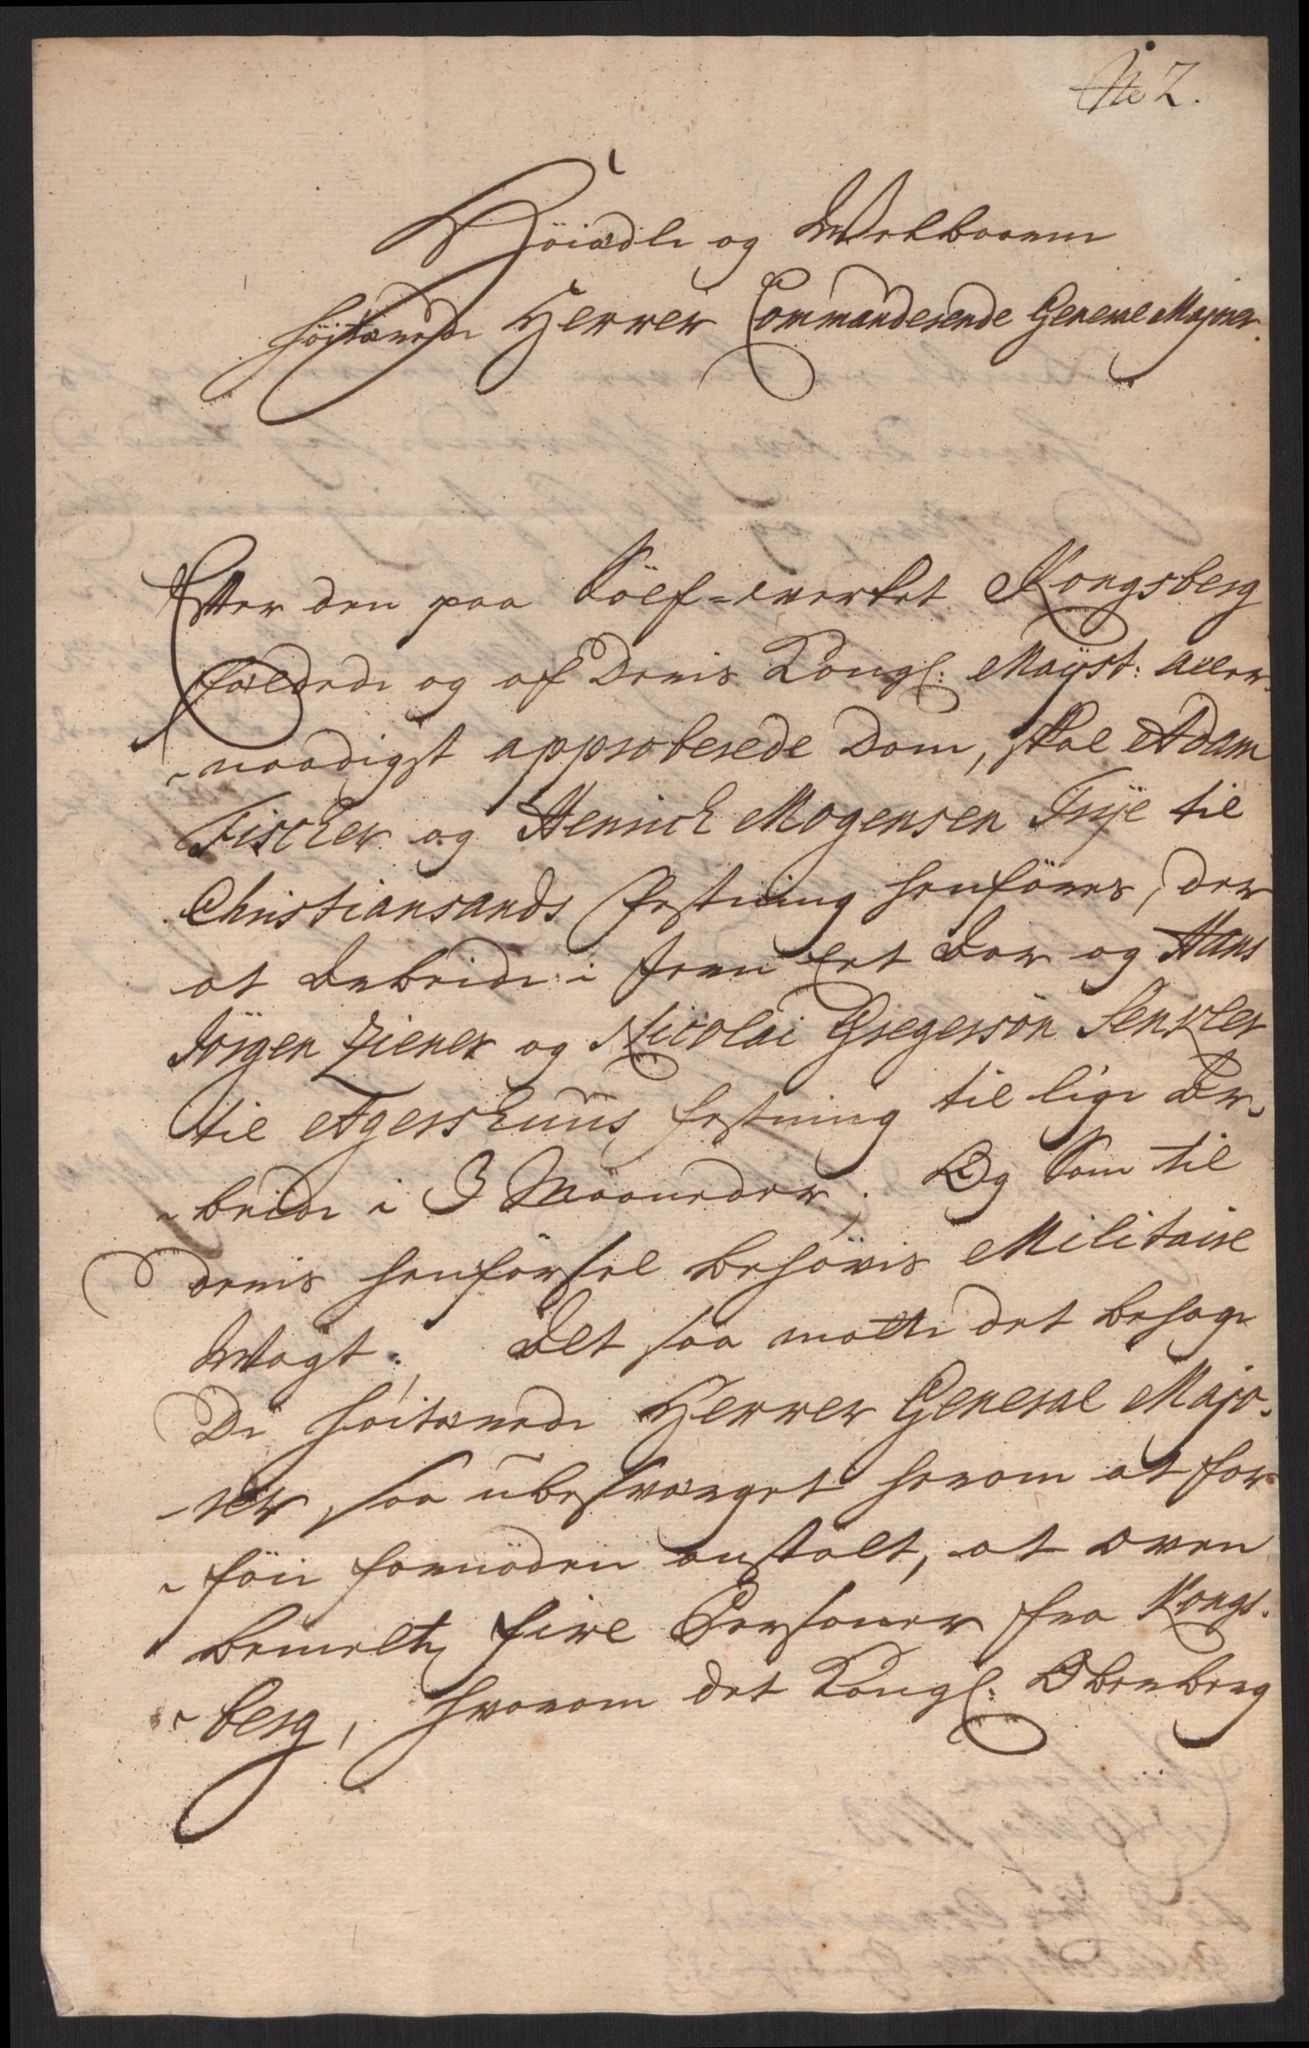 No 7.
Höiædle og Welbaarne
höitærede Herrer Commanderende General Majorer.
Efter den paa Sölf-werket Kongsberg
fældede og af Deris Kongl: Mayst: aller-
naadigst approberede Dom, skal Adam
Fischer og Henrich Mogensen Frye til
Christiansands Fæstning henföres, der
at arbeide i Jern Eet Aar og Hans
Jörgen Ziener og Nicolai Gregersön Senkler
til Agershuus fæstning til lige Ar-
beide i 3 Maaneder; Og Som til
deris henförsel behövis Militaire
Wagt; Alt saa wille det behage
De höitærede Herrer General Majo-
rer saa ubesværget herom at for-
föie fornöden anstalt, at oven
bemelte fire Personer fra Kongs-
berg, hvorom det Kongl: Oberberg